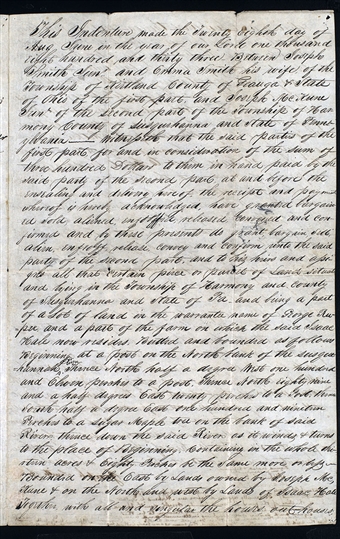 This Indenture made the twenty Eighth day of
Aug, June in the year of our Lord one thousand
eight hundred, and thirty three Between Joseph
Smith Junr and Emma Smith his wife of the
Township of Kirtland County of Geauga & State
of Ohio of the first part, and Joseph McKune
Junr of the second part of the Township of Har
mony County of Susquehanna and State of Penn
sylvania Witnesseth that the said parties of the
first part for and in consideration of the sum of
three hundred Dollars to them in hand paid by the
said party of the second part, at and before the
ensealing and delivery hereof the receipt and payment
whereof is hereby acknowledged, have granted bargain
ed sold aliened enfeoffed released conveyed and con
firmed and by these presents do grant, bargain sell
alien, enfeoff release convey and confirm unto the said
party of the second part, and to his heirs and assi
gns all that certain piece or parcel of Land situate
and lying in the Township of Harmony and county
of Susquehanna and State of Pa. and being a part
of a Lot of land in the warrantee name of George
and a part of the farm on which the said Isaac
Hale now resides. Butted and bounded as follows
Beginning at a post on the North bank of the Susque
hannah River thence North half a degree West one hundred
and Eleven perches to a post, thence North eighty nine
and a half degrees East twenty perches to a Post, thence
South half a degree East one hundred and nineteen
Perches to a Sugar Maple tree on the bank of said
River, thence down the said River as it winds & turns
to the place of Beginning, Containing in the whole
acres & Eighty Perches be the same more or less
Bounded on the East by Lands owned by Joseph Mc
Kune & on the North and West by Lands of Isaac Hale
Together with all and singular the houses out-houses